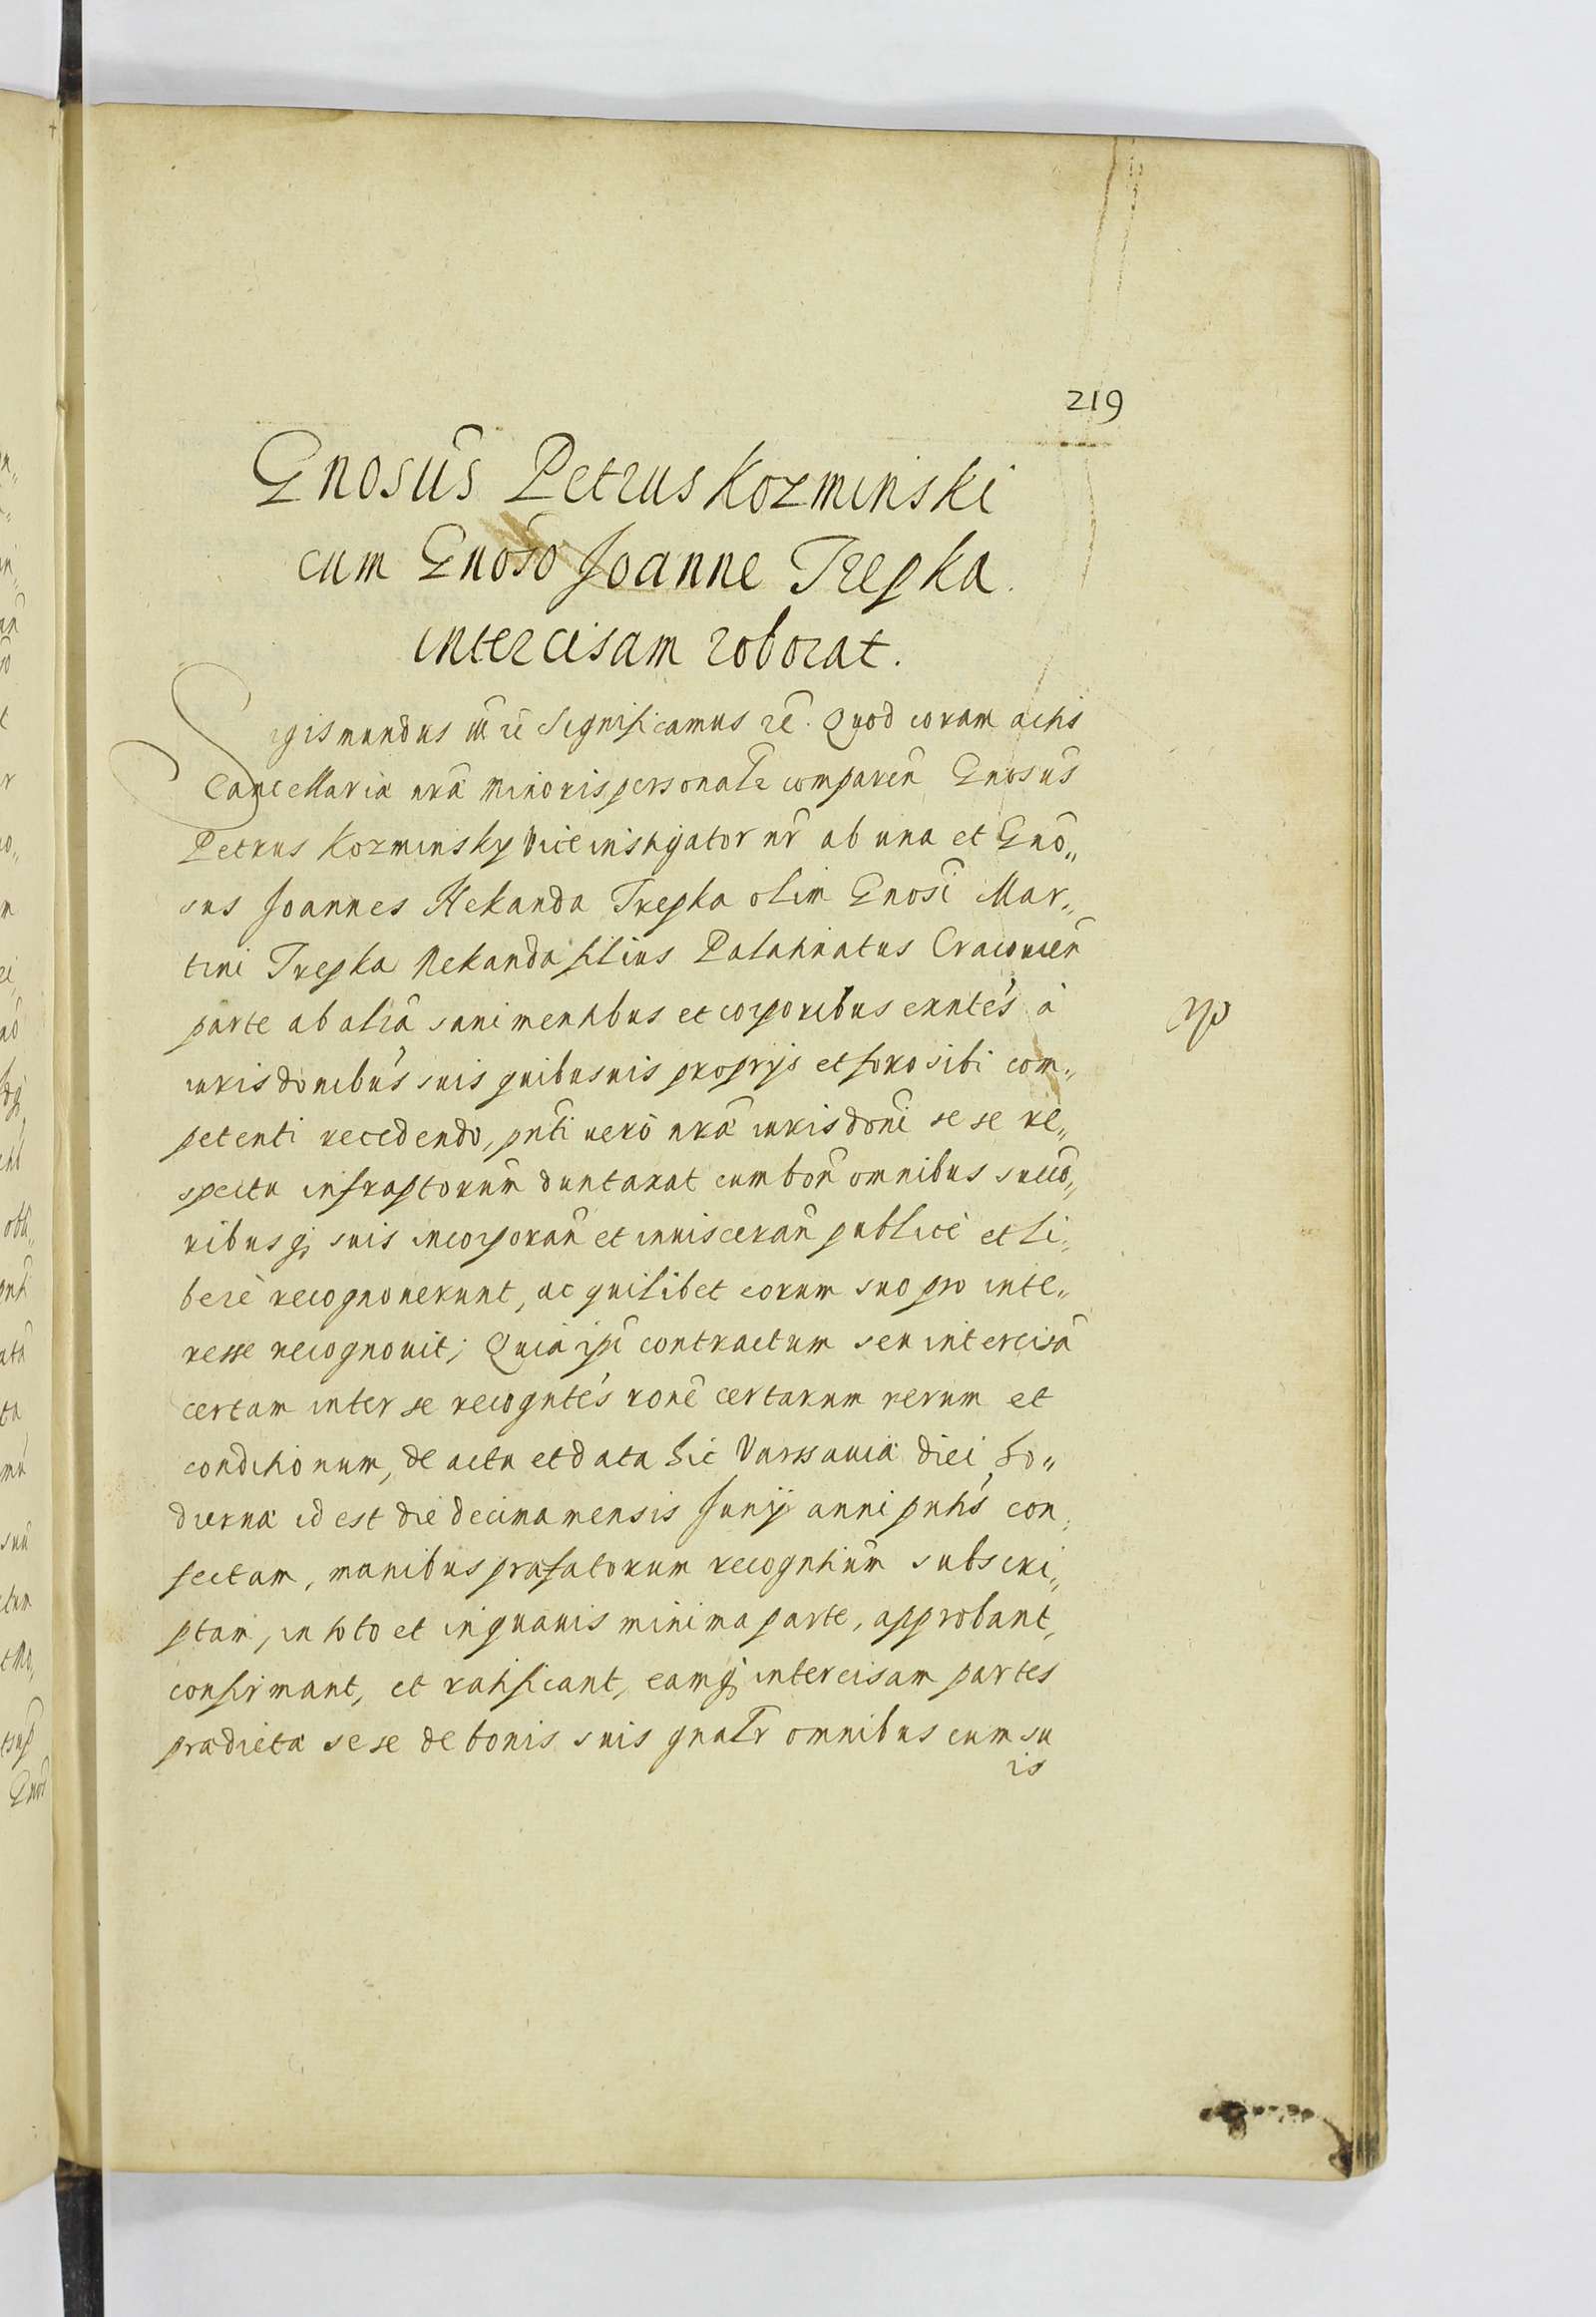 219
Gnosūs Petrus Kozminski
cum Gnoso Joanne Trepka.
intercisam roborat.
Sigismundus III rē Significamus rē. Quod coram actis
Cancellariæ nræ Minoris personalr comparen Gnosus
Petrus Kozminsky Vice instigator nr ab una et Gno„
sus Joannes Nekanda Trepka olim Gnosi Mar„
tini Trepka Nekanda filius Palatinatus Cracouien
parte ab alia sani mentibus et corporibus exntes à
iurisdonibus suis quibusuis proprijs et foro sibi com„
petenti recedendo, pnti uerò nræ iurisdoni se se re„
spectu infraptorum duntaxat cum bon omnibus succō„
ribusq; suis incorporan et inuisceran publicè et li„
berè recognouerunt, ac quilibet eorum suo pro inte„
resse recognouit; Quia ipi contractum seu intercisā
certam inter se recogntes rone certarum rerum et
conditionum, de actu et data hic Varssauiæ diei ho„
diernæ id est die decima mensis Junij anni pntis con„
fectam, manibus præfatorum recogntium subscri„
ptam, in toto et in quauis minima parte, approbant,
confirmant, et ratificant, eamq; intercisam partes
prædictæ sese de bonis suis gnalr omnibus cum su
is